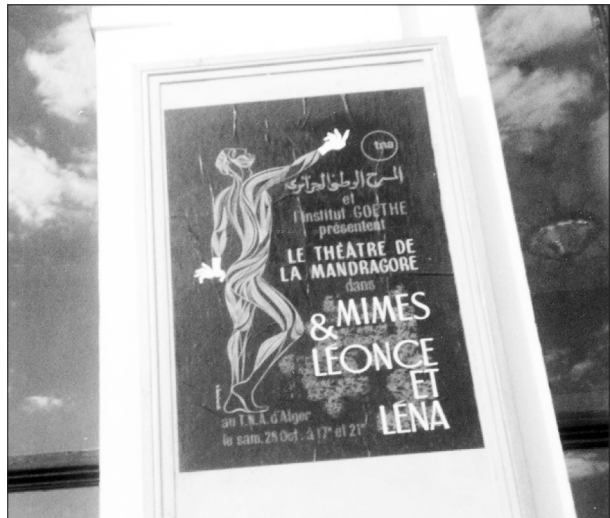 tna
المسرح الوطني الجزائري
et
l'institut GOETHE
présentent
LE THÉÂTRE DE
LA MANDRAGORE
dans
& MIMES
LÉONCE
ET
LÉNA
au T.N.A. d'Alger
le sam. 28 Oct. à 17ʰ et 21ʰ